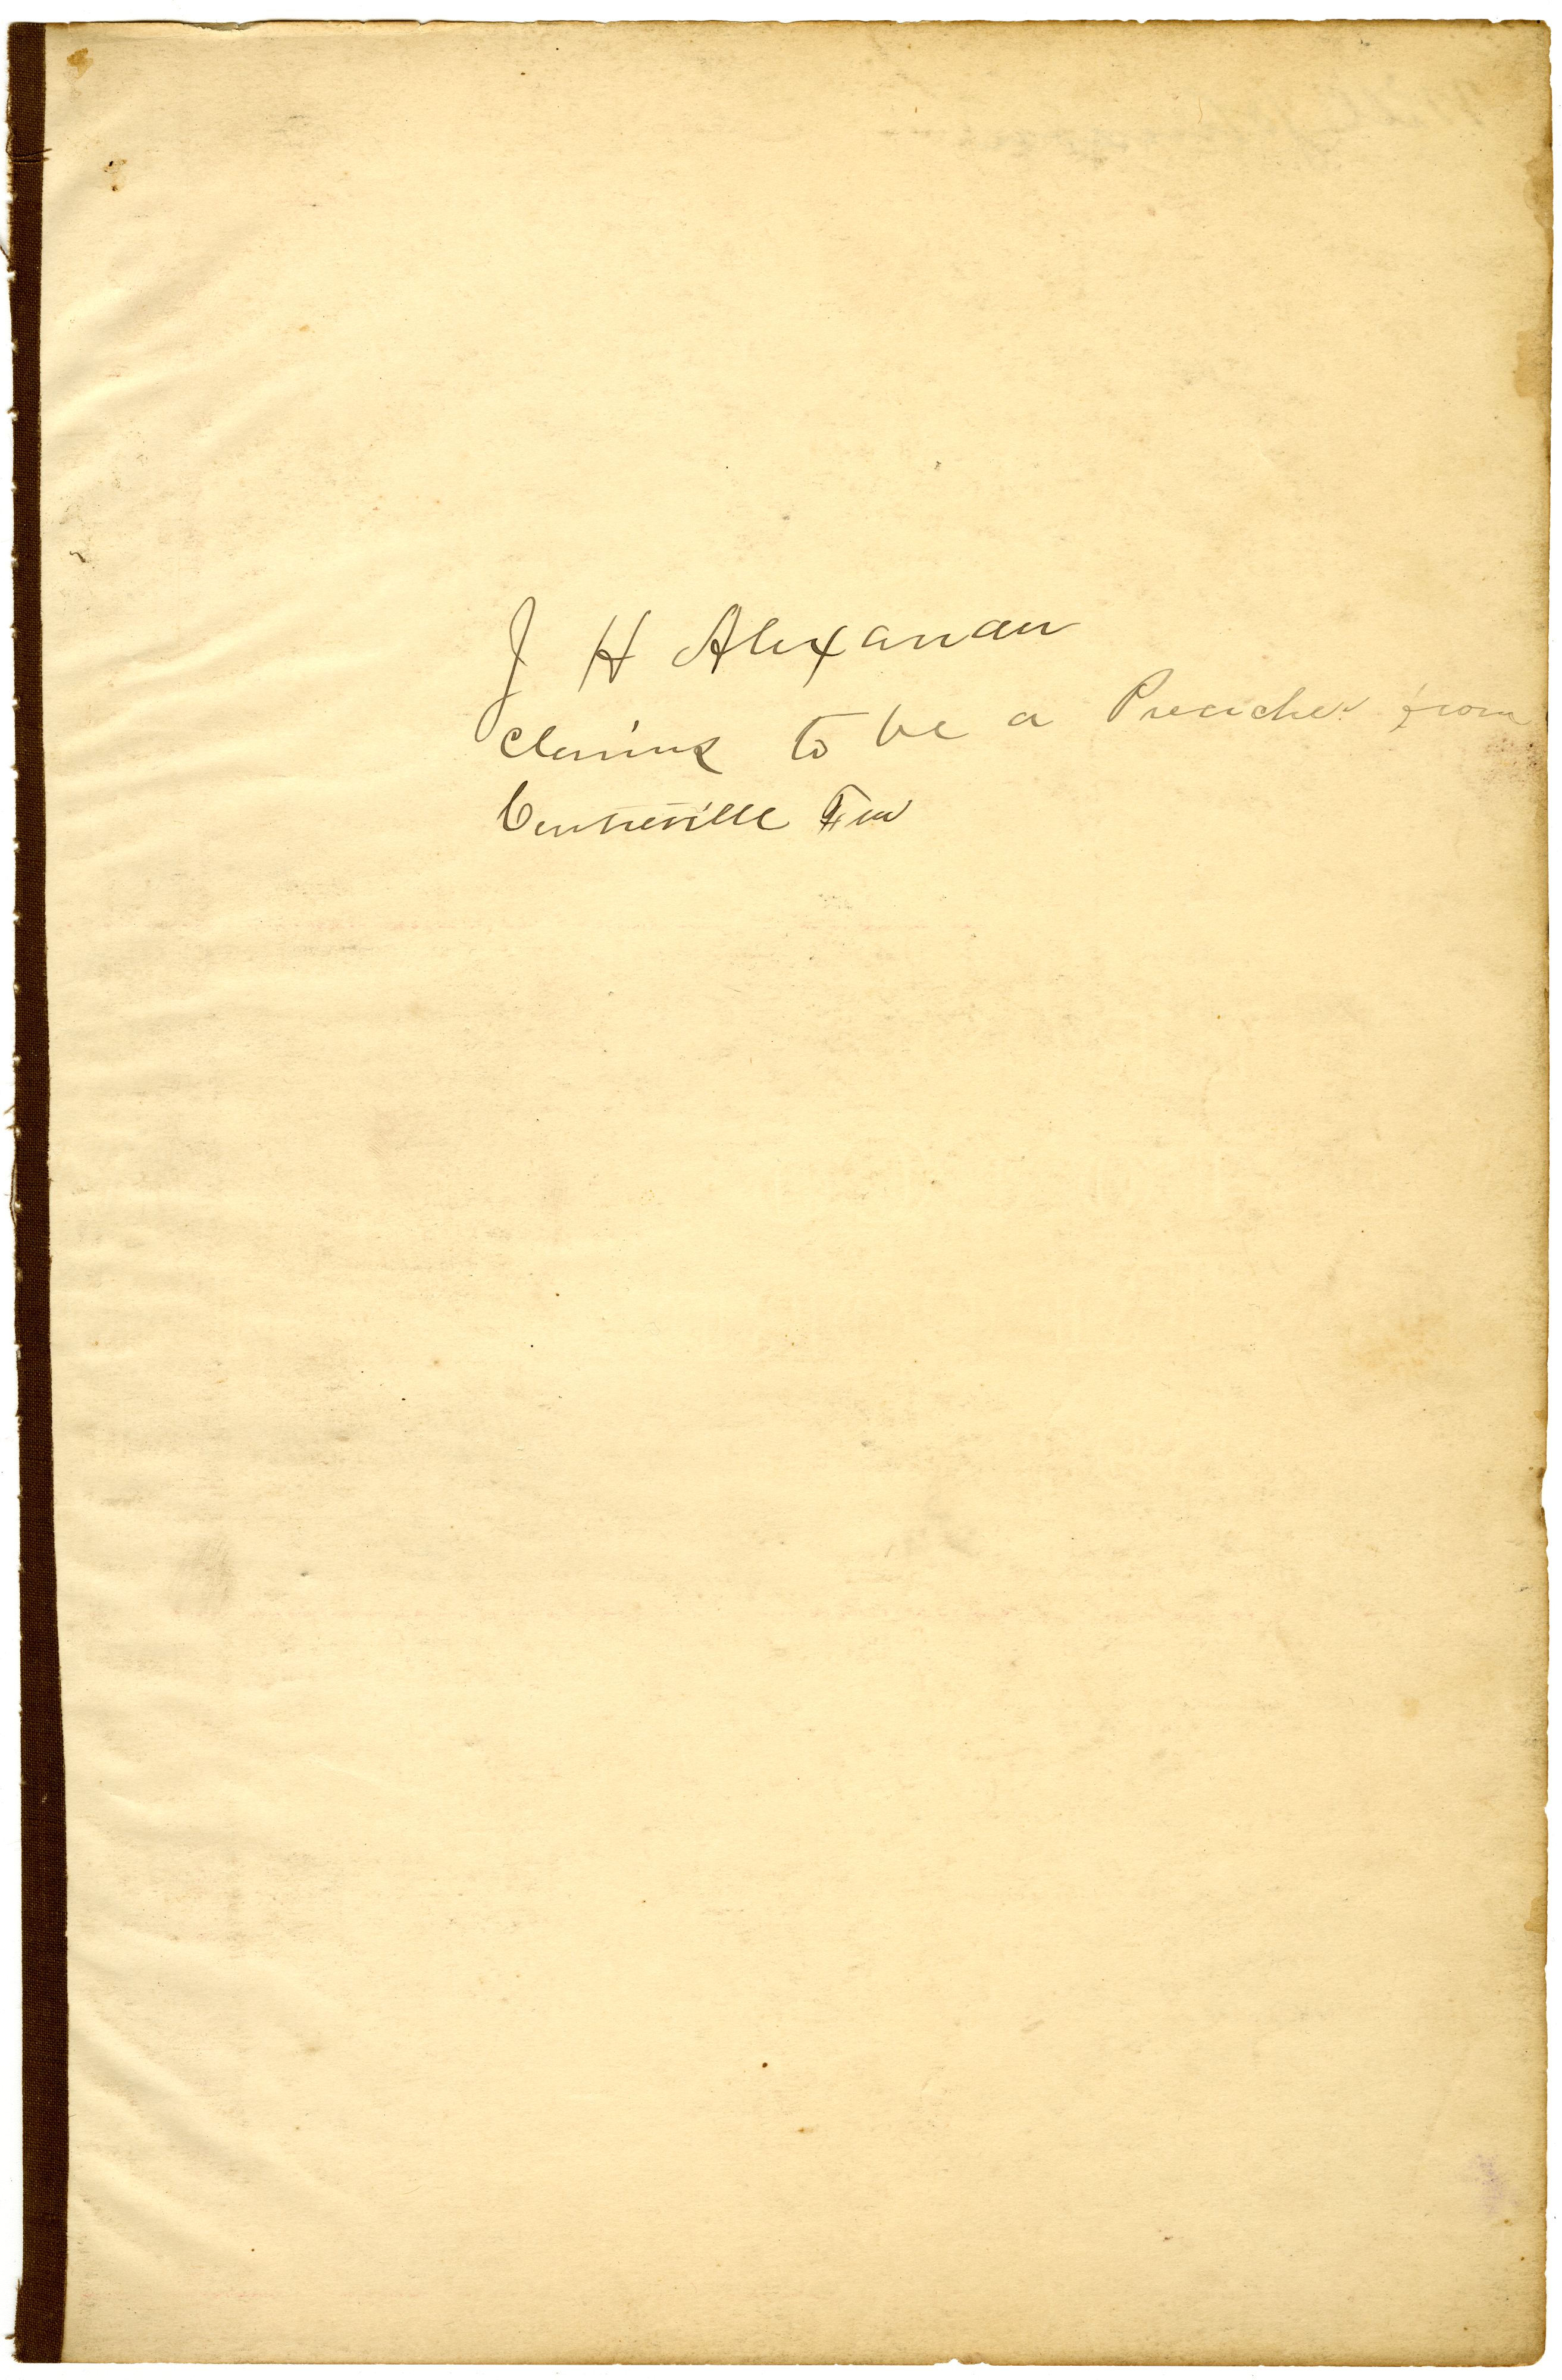 J H Alexander
Claims to be a Preacher from
Centreville Ten